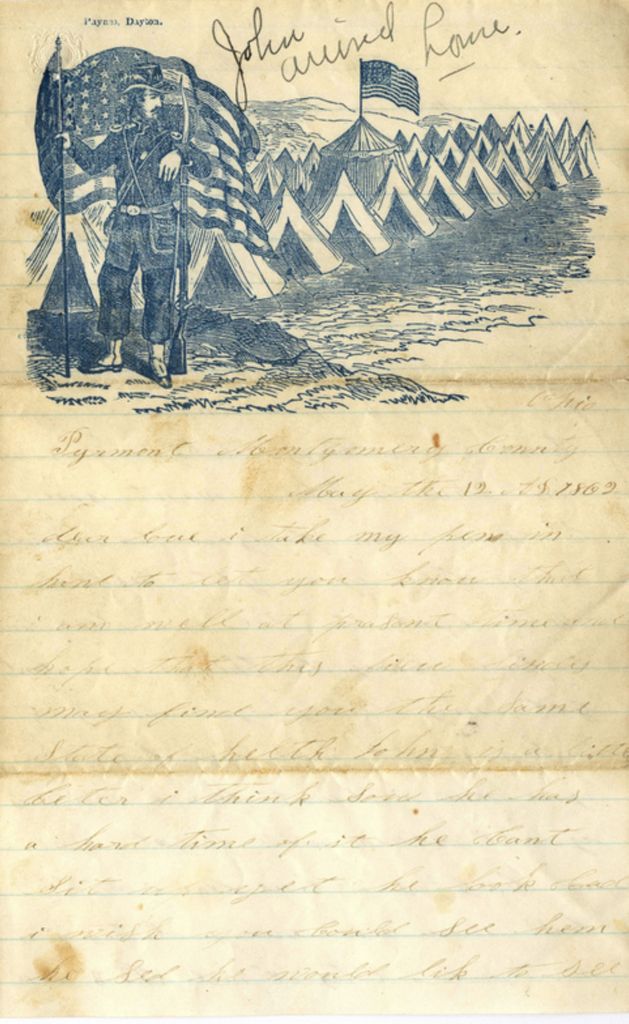 Payne, Dayton.
John
arrived home.
Ohio
Pyrmont Montgomery County
May the 12 AD 1862
dear love i take my pen in
hand to let you know that
i am well at present time and
hope that this few lines
may find you the same
State of helth John is a little
beter i think sow he has
a hard time of it he Cant
Sit up yet he look bad
i wish you Could See hem
he Sed he would lik to See